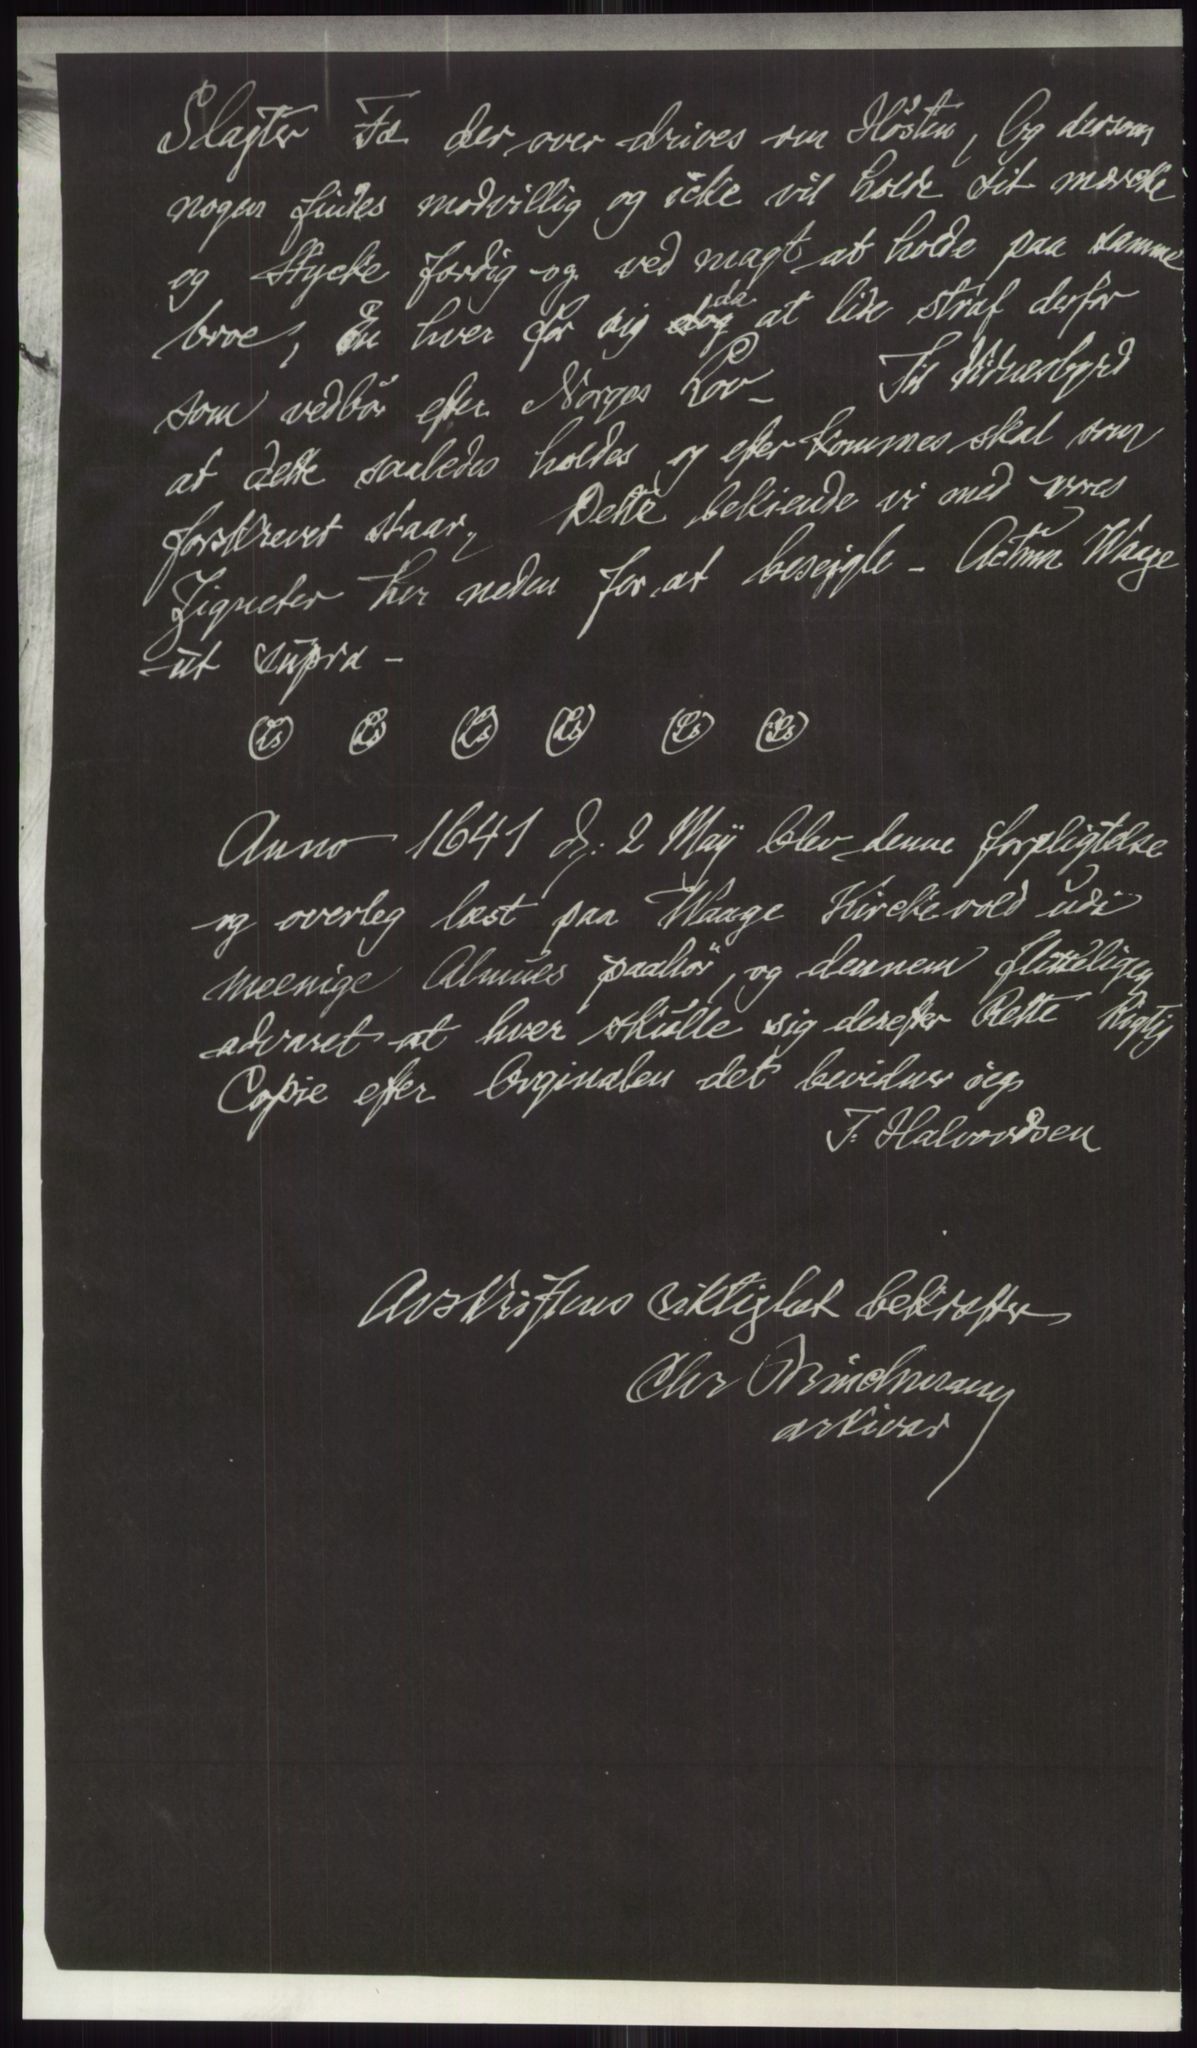 Slagter Fæ der over drives om Hösten, Og dersom
nogen findes modvillig og icke vil holde sit mercke
og Stycke ferdig og ved magt at holde paa samme
broe, En hver for sig da at lide straf derfor
som vedbör efter Norges Lov – Til Vidnesbyrd
at dette saaledes holdes og efterkommes skal som
forskrevet staar, Dette bekiende vi med vores
Zigneter her neden for at besejgle – Actum Waage
ut supra –
Ls Ls Ls Ls Ls Ls
Anno 1641 d: 2 Maÿ blev denne forpligtelse
og overleg læst paa Waage Kirckevold udi
meenige Almues paahör, og dennem flitteligen
advaret at hver skulle sig derefter Rette Rigtig
Copie efter Orginalen det bevidner jeg
T. Halvordsen
Avskriftens riktighet bekrefter
Chr Brinchmann
arkivar